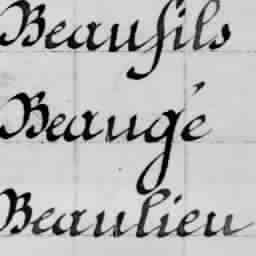 Beaufils
Beaugé
Beaulieu